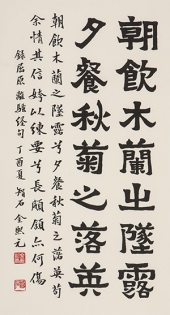 朝飲木蘭之墜露
夕餐秋菊之落英
朝飲木蘭之墜露兮夕餐秋菊之落英苟
余情其信姱以練要兮長顑頷亦何傷
錄屈原離騷經句丁酉夏